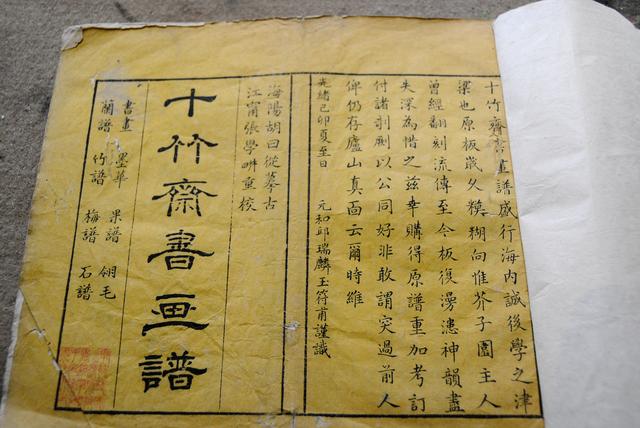 十竹齋書畫譜盛行海内誠後學之津
梁也原板歲久糢糊向惟芥子園主人
曾經翻刻流傳至今板復漫漶神韻盡
失深為惜之兹幸購得原譜重加考訂
付諸剞劂以公同好非敢謂突過前人
俾仍存廬山真面云爾時維
光緒己卯夏至日 元和邱瑞麟玉符甫謹識
海陽胡曰從摹古
江甯張學畊重校
十竹齋書画譜
書畫 墨華 果譜 翎毛
蘭譜 竹譜 梅譜 石譜